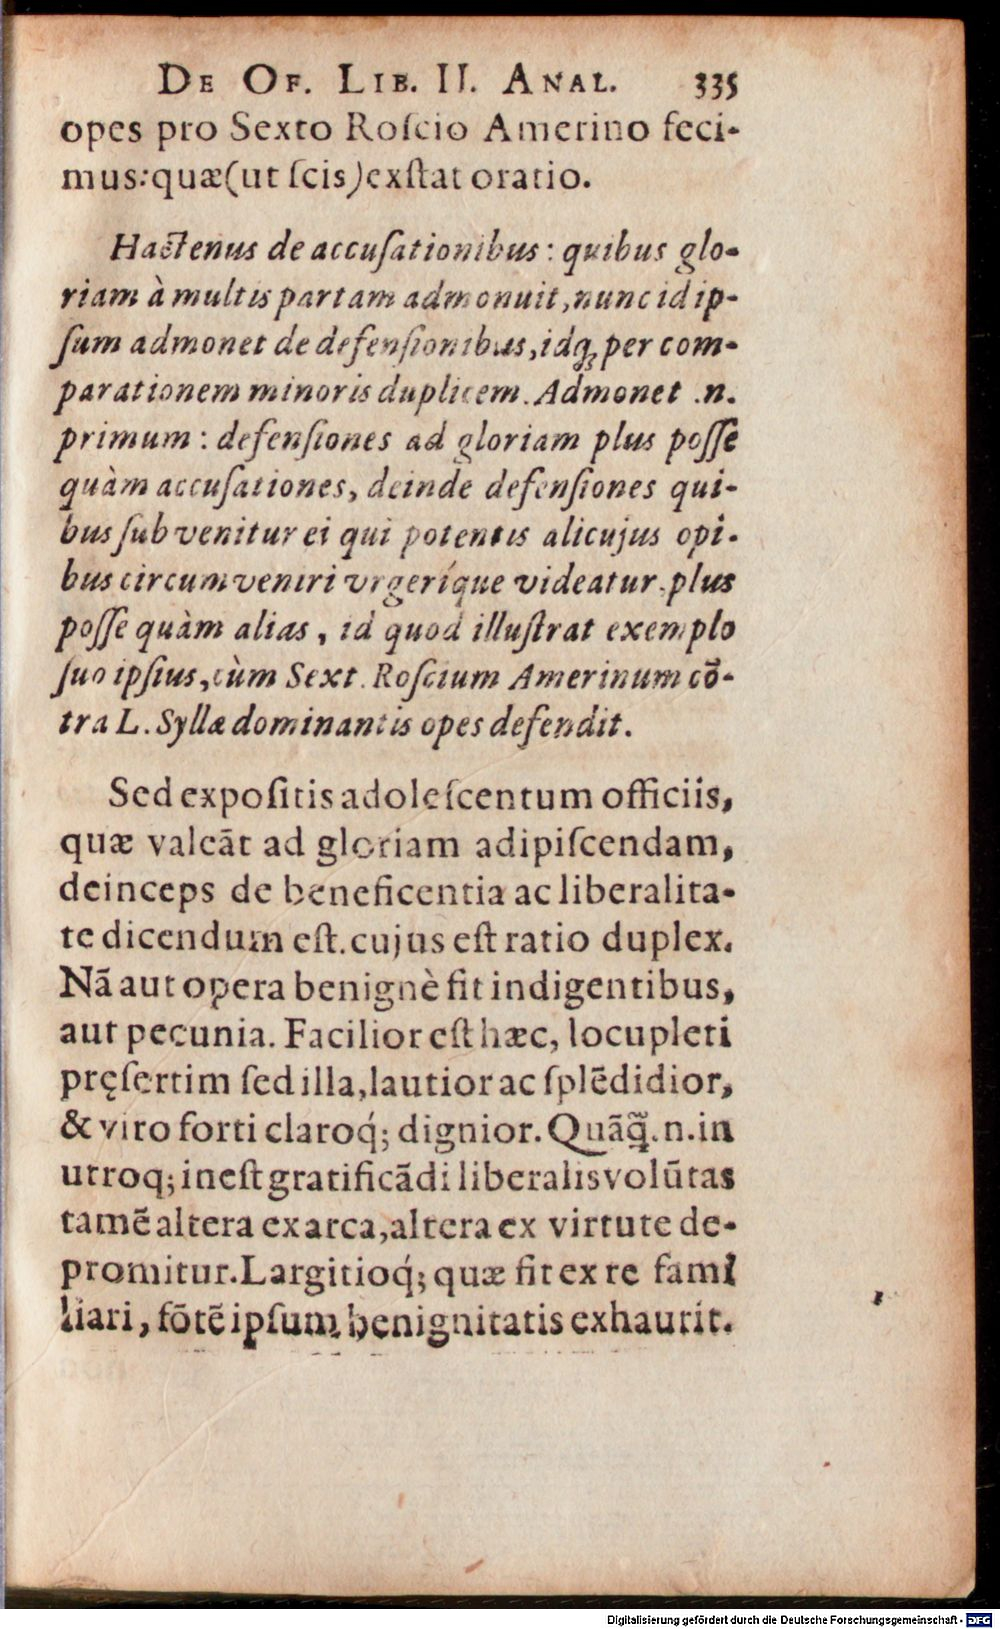 DE OF. LIB. II. ANAL. 335
opes pro Sexto Roſcio Amerino feci-
mus: quæ (ut ſcis) exſtat oratio.
Hactenus de accuſationibus: quibus glo-
riam à multis partam admonuit, nunc id ip-
ſum admonet de defenſionibus, idq; per com-
parationem minoris duplicem. Admonet .n.
primum: defenſiones ad gloriam plus poſſe
quàm accuſationes, deinde defenſiones qui-
bus ſubvenitur ei qui potentis alicujus opi-
bus circumveniri vrgeríque videatur, plus
poſſe quàm alias, id quod illuſtrat exemplo
ſuo ipſius, cùm Sext. Roſcium Amerinum cō-
tra L. Syllæ dominantis opes defendit.
Sed expoſitis adoleſcentum officiis,
quæ valeāt ad gloriam adipiſcendam,
deinceps de beneficentia ac liberalita-
te dicendum eſt. cujus eſt ratio duplex.
Nā aut opera benignè fit indigentibus,
aut pecunia. Facilior eſt hæc, locupleti
pręſertim ſed illa, lautior ac ſplēdidior,
& viro forti claroq́; dignior. Quāq̃. n. in
utroq; ineſt gratificādi liberalis volūtas
tamē altera ex arca, altera ex virtute de-
promitur. Largitioq́; quæ fit ex re fami
liari, fōtē ipſum benignitatis exhaurit.
Digitalisierung gefördert durch die Deutsche Forschungsgemeinschaft - DFG